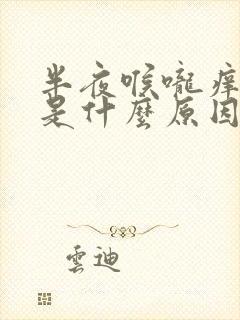 半夜喉嚨癢
是什麼原因
雲迪